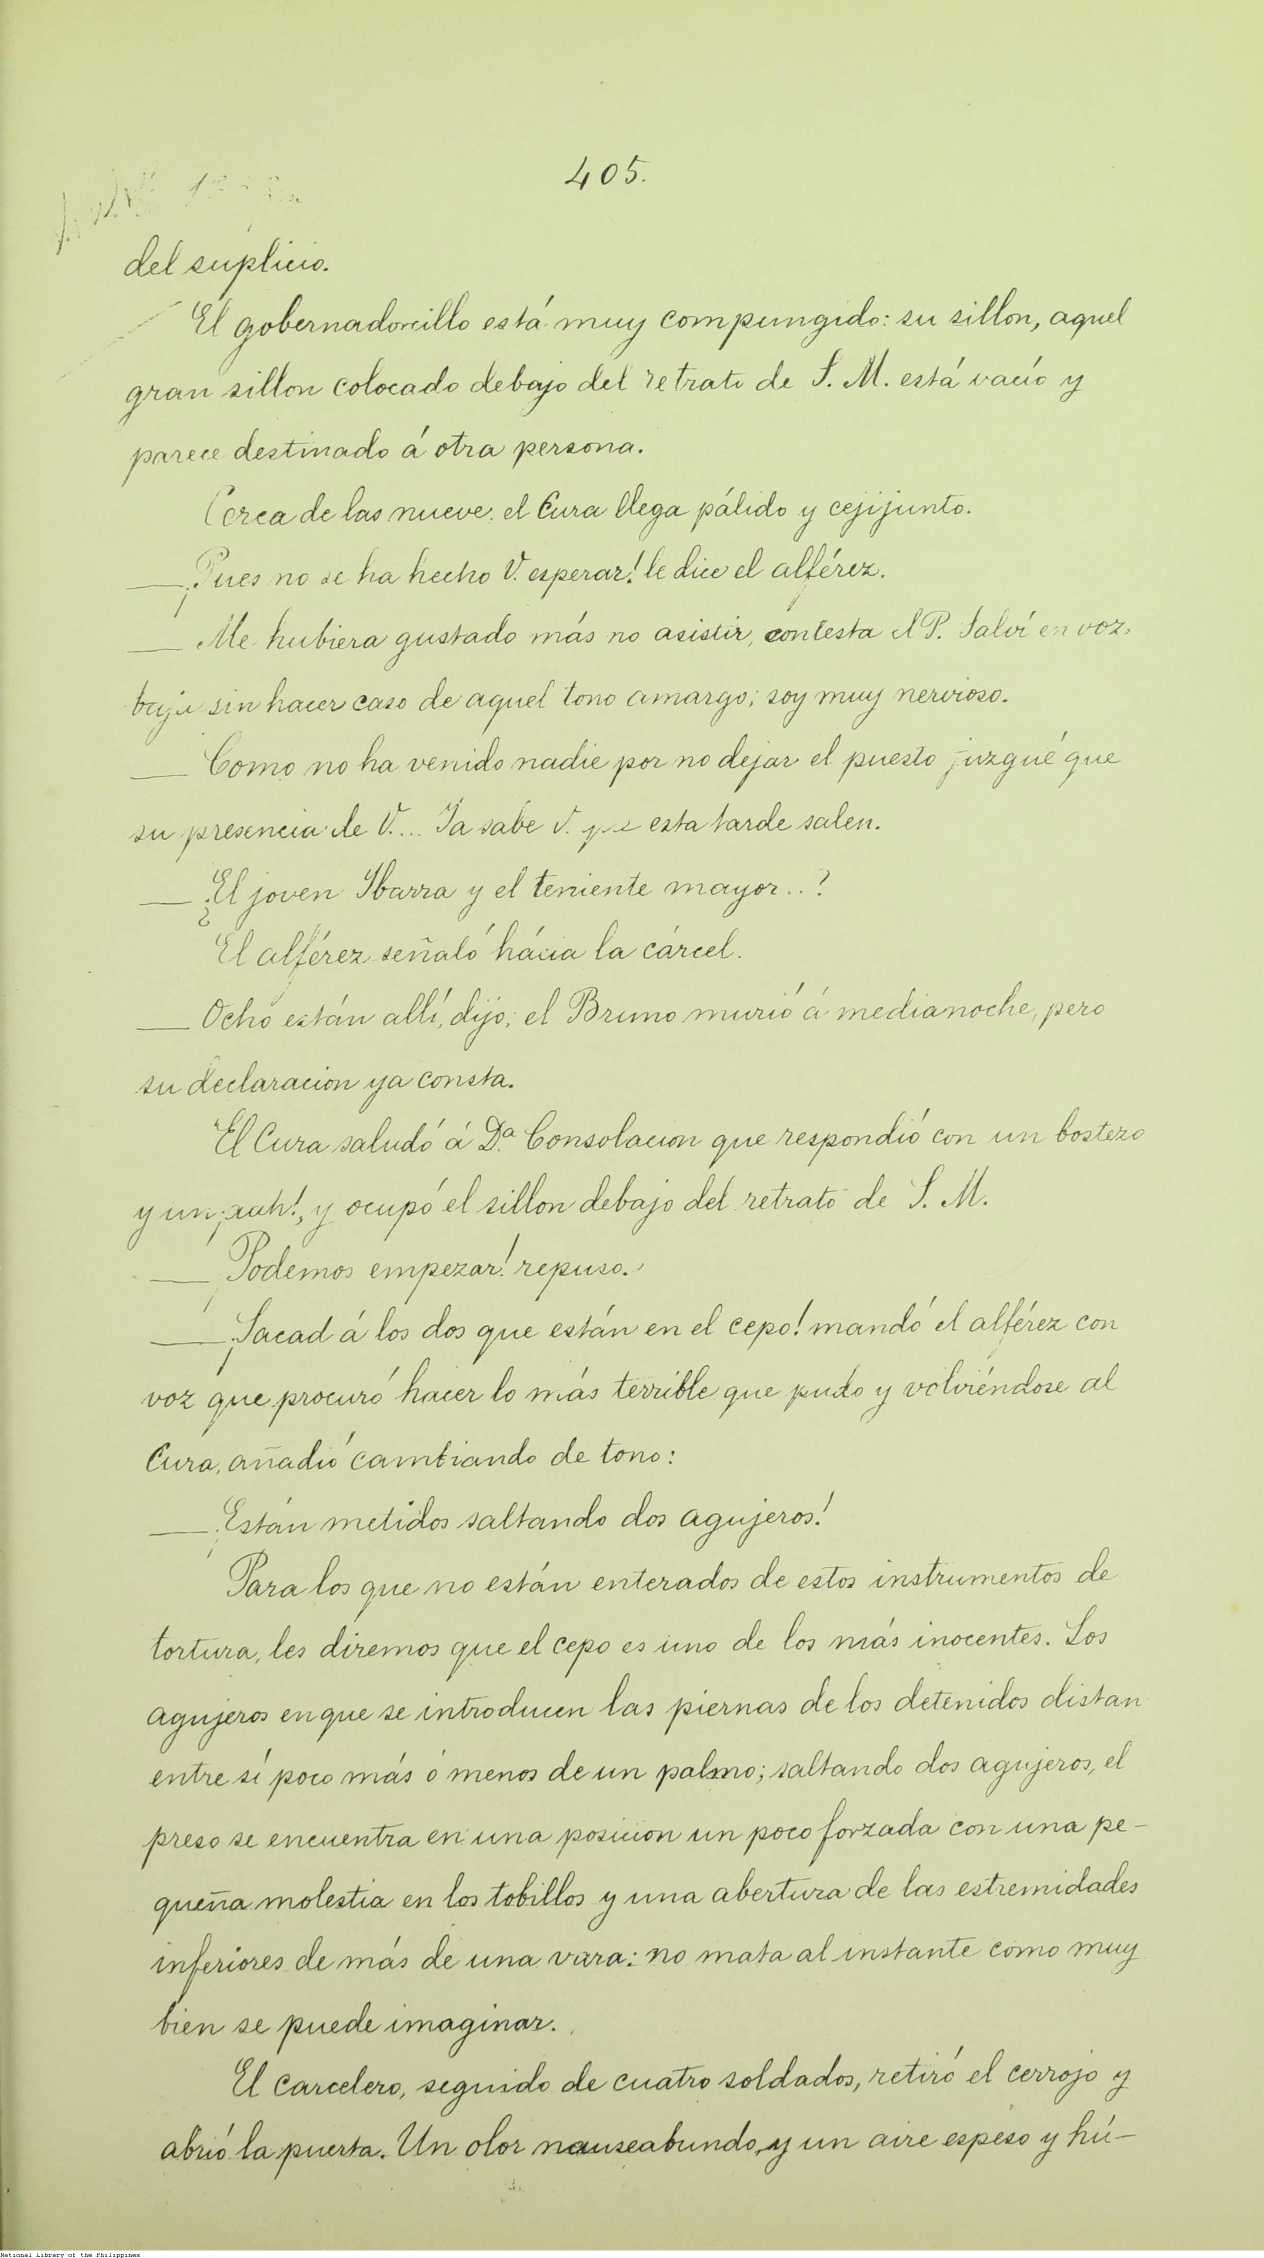 405.
del suplicio.
El gobernadorcillo está muy compungido: su sillon, aquel
gran sillon colocado debajo del retrato de S. M. está vacío y
parece destinado á otra persona.
Cerca de las nueve, el Cura llega pálido y cejijunto.
—¡Pues no se ha hecho V. esperar! le dice el alférez.
— Me hubiera gustado más no asistir, contesta el P. Salví en voz
baja sin hacer caso de aquel tono amargo; soy muy nervioso.
— Como no ha venido nadie por no dejar el puesto juzgué que
su presencia de V.... Ya sabe V. que esta tarde salen.
— ¿El joven Ibarra y el teniente mayor..?
El alférez señaló hácia la cárcel.
— Ocho están allí, dijo; el Bruno murió á medianoche, pero
su declaracion ya consta.
El Cura saludó á D.ª Consolacion que respondió con un bostezo
y un ¡aah!, y ocupó el sillon debajo del retrato de S. M.
— ¡Podemos empezar! repuso.
— ¡Sacad á los dos que están en el cepo! mandó el alférez con
voz que procuró hacer lo más terrible que pudo y volviéndose al
Cura, añadió cambiando de tono:
— ¡Están metidos saltando dos agujeros!
Para los que no están enterados de estos instrumentos de
tortura, les diremos que el cepo es uno de los más inocentes. Los
agujeros en que se introducen las piernas de los detenidos distan
entre sí poco más ó menos de un palmo; saltando dos agujeros, el
preso se encuentra en una posicion un poco forzada con una pe-
queña molestia en los tobillos y una abertura de las estremidades
inferiores de más de una vara: no mata al instante como muy
bien se puede imaginar.
El carcelero, seguido de cuatro soldados, retiró el cerrojo y
abrió la puerta. Un olor nauseabundo, y un aire espeso y hú-
National Library of the Philippines